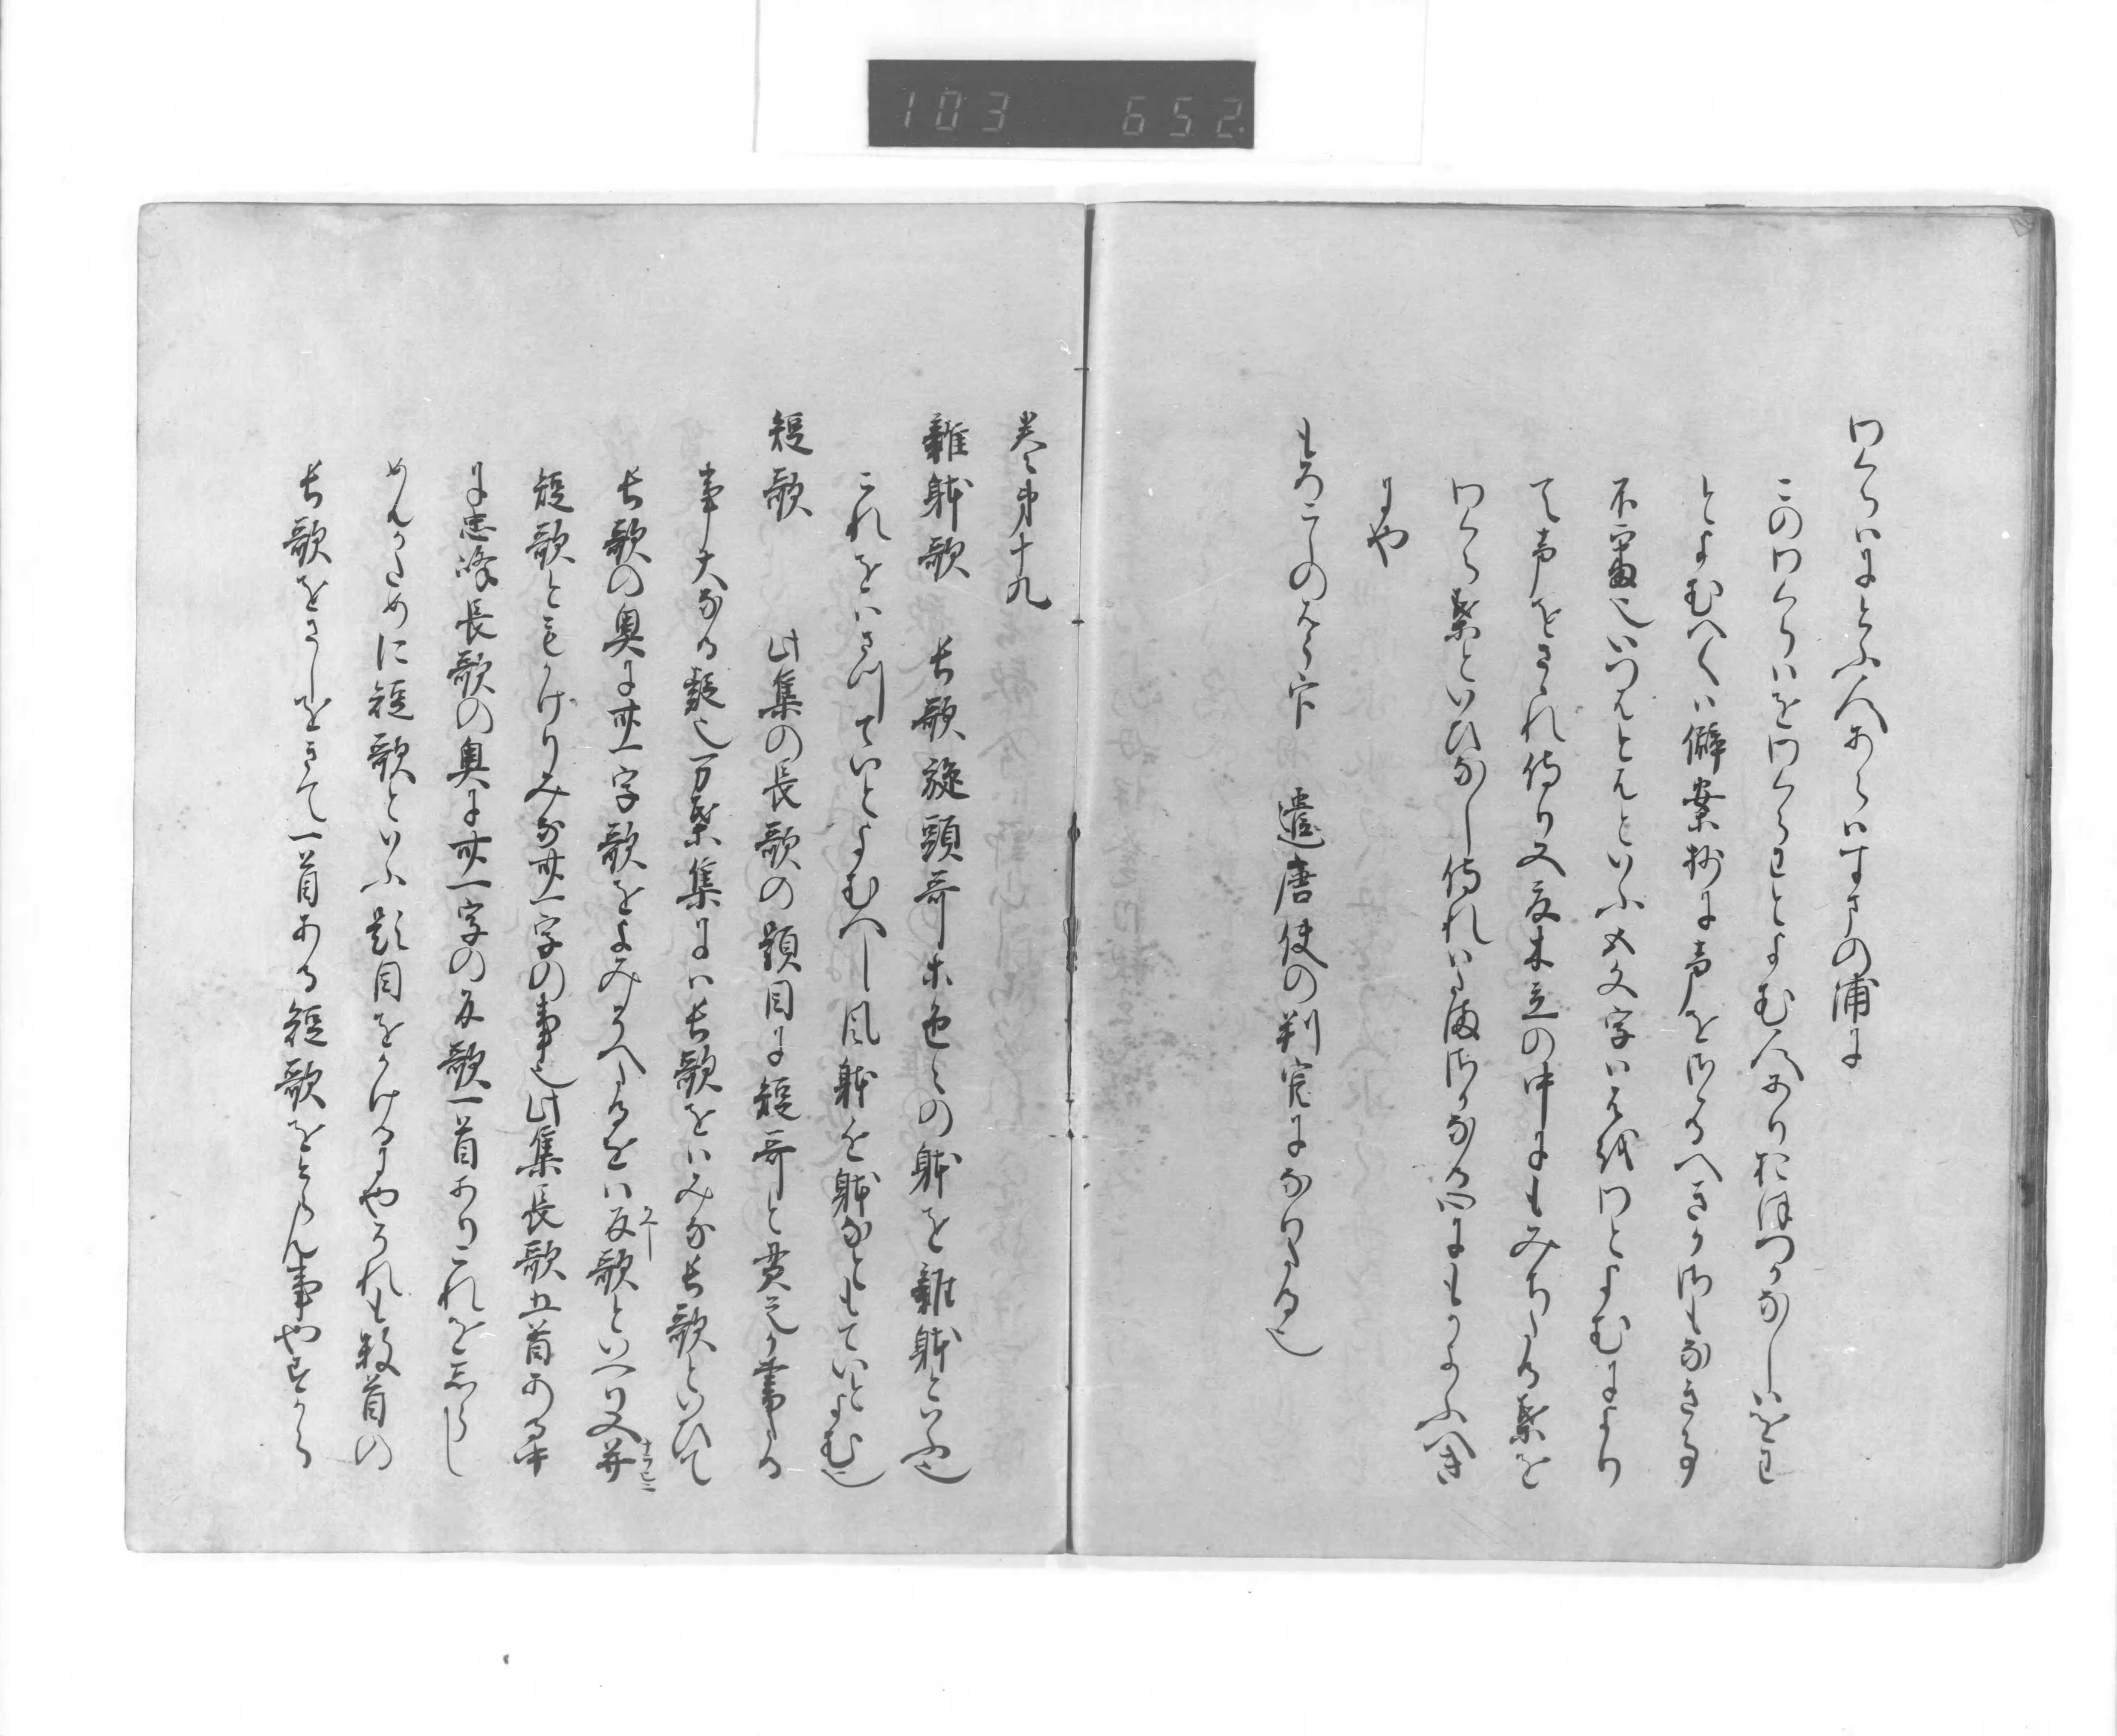 103 652
わくらはにとふ人あらはすまの浦に
このわくらはをわくらはとよむ人ありおほつかなしはをわ
とよむへくは僻案抄に声をさるへきかさもなき事
不審也いつれとんといふ文字はを或わとよむにより
て声をさされ侍り又夏木立の中にもみちたる葉を
わくら葉といひならし侍れはたまさかなる心にもかよふへき
にや
もろこしのはう官 遣唐使の判官になりたる也
巻第十九
雑躰歌 長歌旋頭哥未色々の躰を雑躰といふ也
これをはさつていとよむへし風躰を躰なともていとよむ也
短歌 此集の長歌の題目に短哥と貫之か書たる
事大なる疑也万葉集には長歌をはみな長歌といひて
長歌の奥に卅一字歌をよみそへたるをは反歌といへり又并
短歌ともかけりみな卅一字の事也此集長歌五首ある中
に忠峰長歌の奥に卅一字の反歌一首ありこれをしらし
めんかために短歌といふ題目をかけるにやそれも数首の
長歌をさしをきて一首ある短歌をとらん事やすから